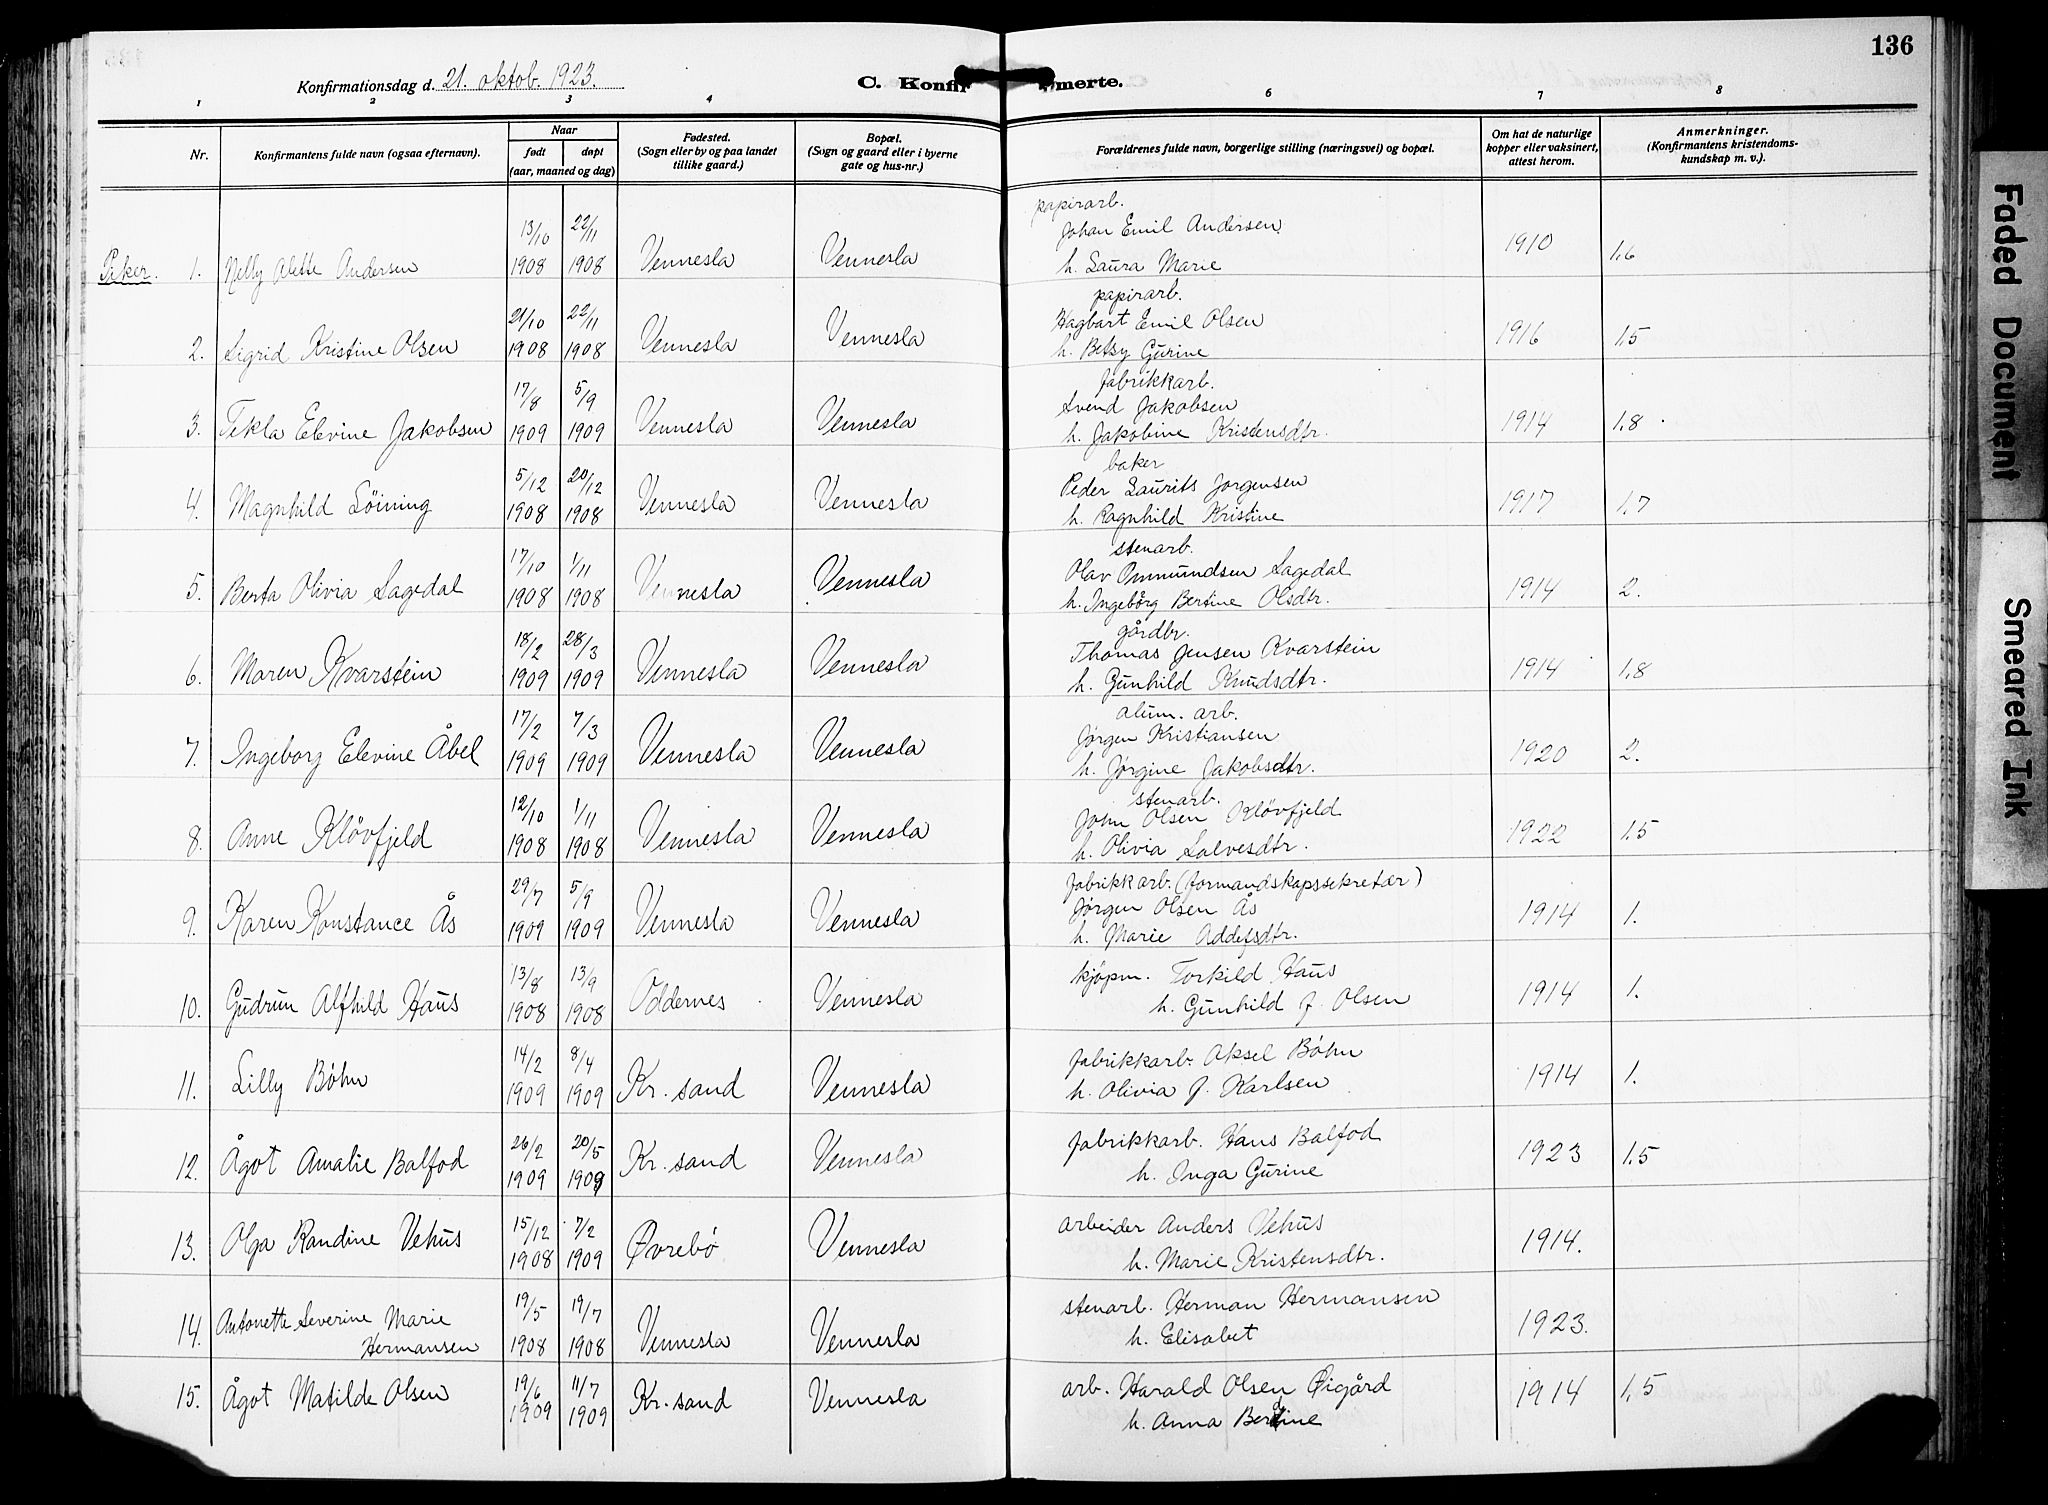 136
Konfirmationsdag d. 21. oktob. 1923.
C. Konfir merte.
1 2 3 4 6 7 8
Nr.
Konfirmantens fulde navn (ogsaa efternavn).
Naar
født døpt
(aar, maaned og dag)
Fødested.
(Sogn eller by og paa landet
tillike gaard.)
Bopæl.
(Sogn og gaard eller i byerne
gate og hus-nr.)
Forældrenes fulde navn, borgerlige stilling (næringsvei) og bopæl.
Om hat de naturlige
kopper eller vaksinert,
attest herom.
Anmerkninger.
(Konfirmantens kristendoms-
kundskap m. v.).
papirarb.
13/10 22/11 Johan Emil Andersen
Piker. 1. Nelly Alette Andersen 1908 1908 Vennesla Vennesla h. Laura Marie 1910 1,6
papirarb.
21/10 22/11 Hagbart Emil Olsen
2. Sigrid Kristine Olsen 1908 1908 Vennesla Vennesla h. Betsy Gurine 1916 1,5
fabrikkarb.
17/8 5/9 Svend Jakobsen
3. Tekla Elevine Jakobsen 1909 1909 Vennesla Vennesla h. Jakobine Kristensdtr. 1914 1,8
baker
5/12 20/12 Peder Laurits Jorgensen
4. Magnhild Löining 1908 1908 Vennesla Vennesla h. Ragnhild Kristine 1917 1,7
stenarb.
17/10 1/11 Olav Ommundsen Lagedal
5. Berta Olivia Lagedal 1908 1908 Vennesla Vennesla h. Ingebörg Bertine Olsdtr. 1914 2.
gårdbr.
18/2 28/3 Thomas Jensen Kvarstein
6. Maren Kvarstein 1909 1909 Vennesla Vennesla h. Gunhild Knudsdtr. 1914 1,8
alum. arb.
17/2 7/3 Jörgen Kristiansen
7. Ingeborg Elevine Åbel 1909 1909 Vennesla Vennesla h. Jörgine Jakobsdtr. 1920 2.
stenarb.
12/10 1/11 John Olsen Klövfjeld
8. Anne Klövfjeld 1908 1908 Vennesla Vennesla h. Olivia Salvesdtr. 1922 1,5
fabrikkarb. (formandskapssekretær)
29/7 5/9 Jörgen Olsen Ås
9. Karen Konstance Ås 1909 1909 Vennesla Vennesla h. Marie Addefsdtr. 1914 1.
13/8 13/9 kjöpm. Torkild Haus
10. Gudrun Alfhild Haus 1908 1908 Oddernes Vennesla h. Gunhild f. Olsen 1914 1.
14/2 8/4 fabrikkarb. Aksel Böhn
11. Lilly Böhn 1909 1909 Kr. sand Vennesla h. Olivia f. Karlsen 1914 1.
26/2 20/5 fabrikkarb. Hans Balfod
12. Ågot Amalie Balfod 1909 1909 Kr. sand Vennesla h. Inga Gurine 1923 1,5
15/12 7/2 arbeider Anders Vehus
13. Olga Randine Vehus 1908 1909 Øvrebö Vennesla h. Marie Kristensdtr. 1914.
19/5 19/7 stenarb. Herman Hermansen
14. Antonette Severine Marie
Hermansen 1908 1908 Vennesla Vennesla h. Elisabet 1923.
19/6 11/7 arb. Harald Olsen Øigård
15. Ågot Matilde Olsen 1909 1909 Kr. sand Vennesla h. Anna Berdine 1914 1,5
Faded Document
Smeared Ink